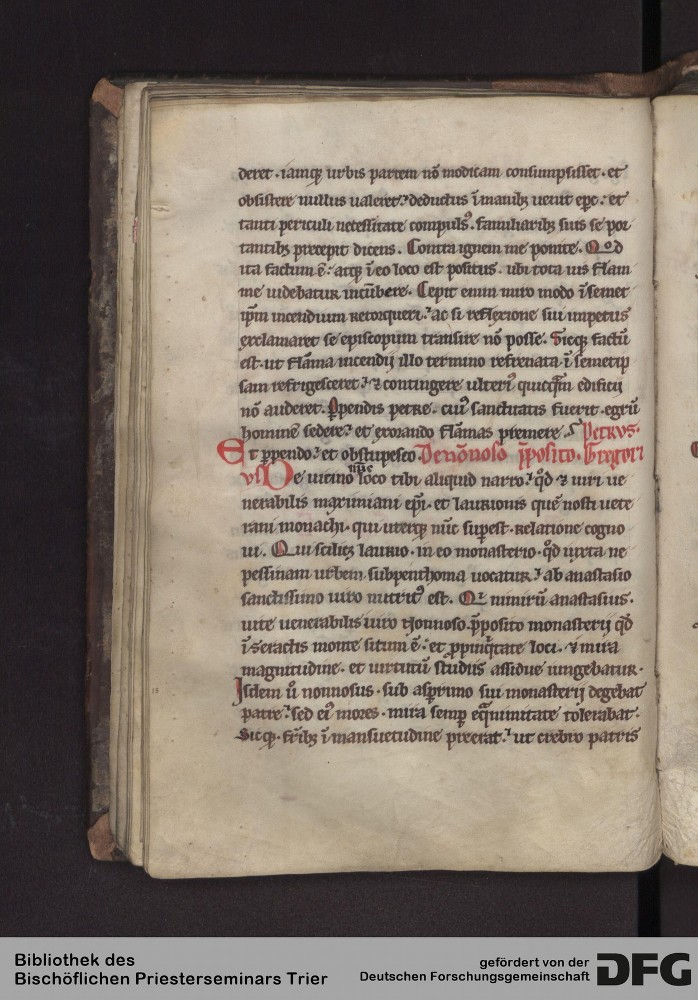 deret. iamq; urbis partem nō modicam consumpsisset. et
obsistere nullus ualeret. deductus ī manibꝫ uenit epc. et
tanti periculi necessitate compulsꝰ. familiaribꝫ suis se por
tantibꝫ precepit dicens. Contra ignem me ponite. Qod
ita factum ē. atqꝫ ī eo loco est positus. ubi tota uis flam
me uidebatur incūbere. Cepit enim miro modo ī semet
ip̄m incendium retorqueri. ac si reflexione sui impetus
exclamaret se episcopum transire nō posse. Sicqꝫ factū
est. ut flāma incendij illo termino refrenata ī semetip
sam refrigesceret. ⁊ contingere ulteriꝰ quicq̄m edificij
nō auderet. Ꝑpendis petre. cuiꝰ sanctitatis fuerit. egrū
hominē sedere. et exorando flāmas premere. Petrus.
Et ꝑpendo. et obstupesco. De nōnoso p̄posito. Gregori
us De uicino nūc loco tibi aliquid narro. qd̄ ⁊ uiri ue
nerabilis maximiani ep̄i. et laurionis quē nosti uete
rani monachi. qui uterqꝫ nūc sup̄est. relatione cogno
ui. Qui scilicꝫ laurio. in eo monasterio. qd̄ iuxta ne
pessinam urbem. subpenthoma uocatur. ab anastasio
sanctissimo uiro nutritꝰ est. Qi nimirū anastasius.
uite uenerabilis uiro Nonnoso. p̄posito monasterij qd̄
ī seractis monte situm ē. et ꝓpinq̄tate loci. ⁊ mira
magnitudine. et uirtutū studiis assidue iungebatur.
Isdem ū nonnosus. sub asꝑrimo sui monasterij degebat
patre. sed eiꝰ mores. mira semꝑ eq̄nimitate tolerabat.
Sicqꝫ. fr̄ibꝫ ī mansuetudine preerat. ut crebro patris
Bibliothek des
Bischöflichen Priesterseminars Trier
gefördert von der
Deutschen Forschungsgemeinschaft
DFG